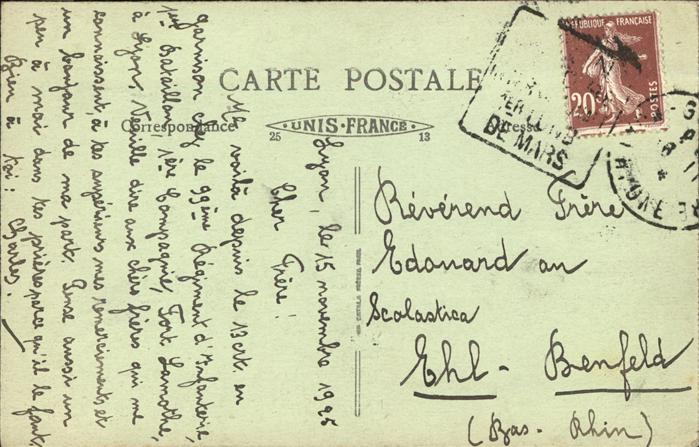 CARTE POSTALE
Correspondance
UNIS-FRANCE
25
13
Adresse
RÉPUBLIQUE FRANÇAISE
20c
POSTES
1ER LUND
DE MARS
RHÔNE
Lyon, le 15 novembre 1925
Cher Frère!
Me voilà depuis le 13 crt. en
garnison chez le 99ème Régiment d'Infanterie,
1er Bataillon, 1ère Compagnie, Fort Lamothe,
à Lyon. Veuille dire aux chers frères qui me
connaissent, à tes supérieurs mes remerciements, et
un bonjour de ma part. Pense aussi un
peu à moi dans tes prières parce qu'il le faut.
Bien à toi: Charles.
Révérend Frère
Edouard au
Scolastica
Ehl - Benfeld
(Bas-Rhin)